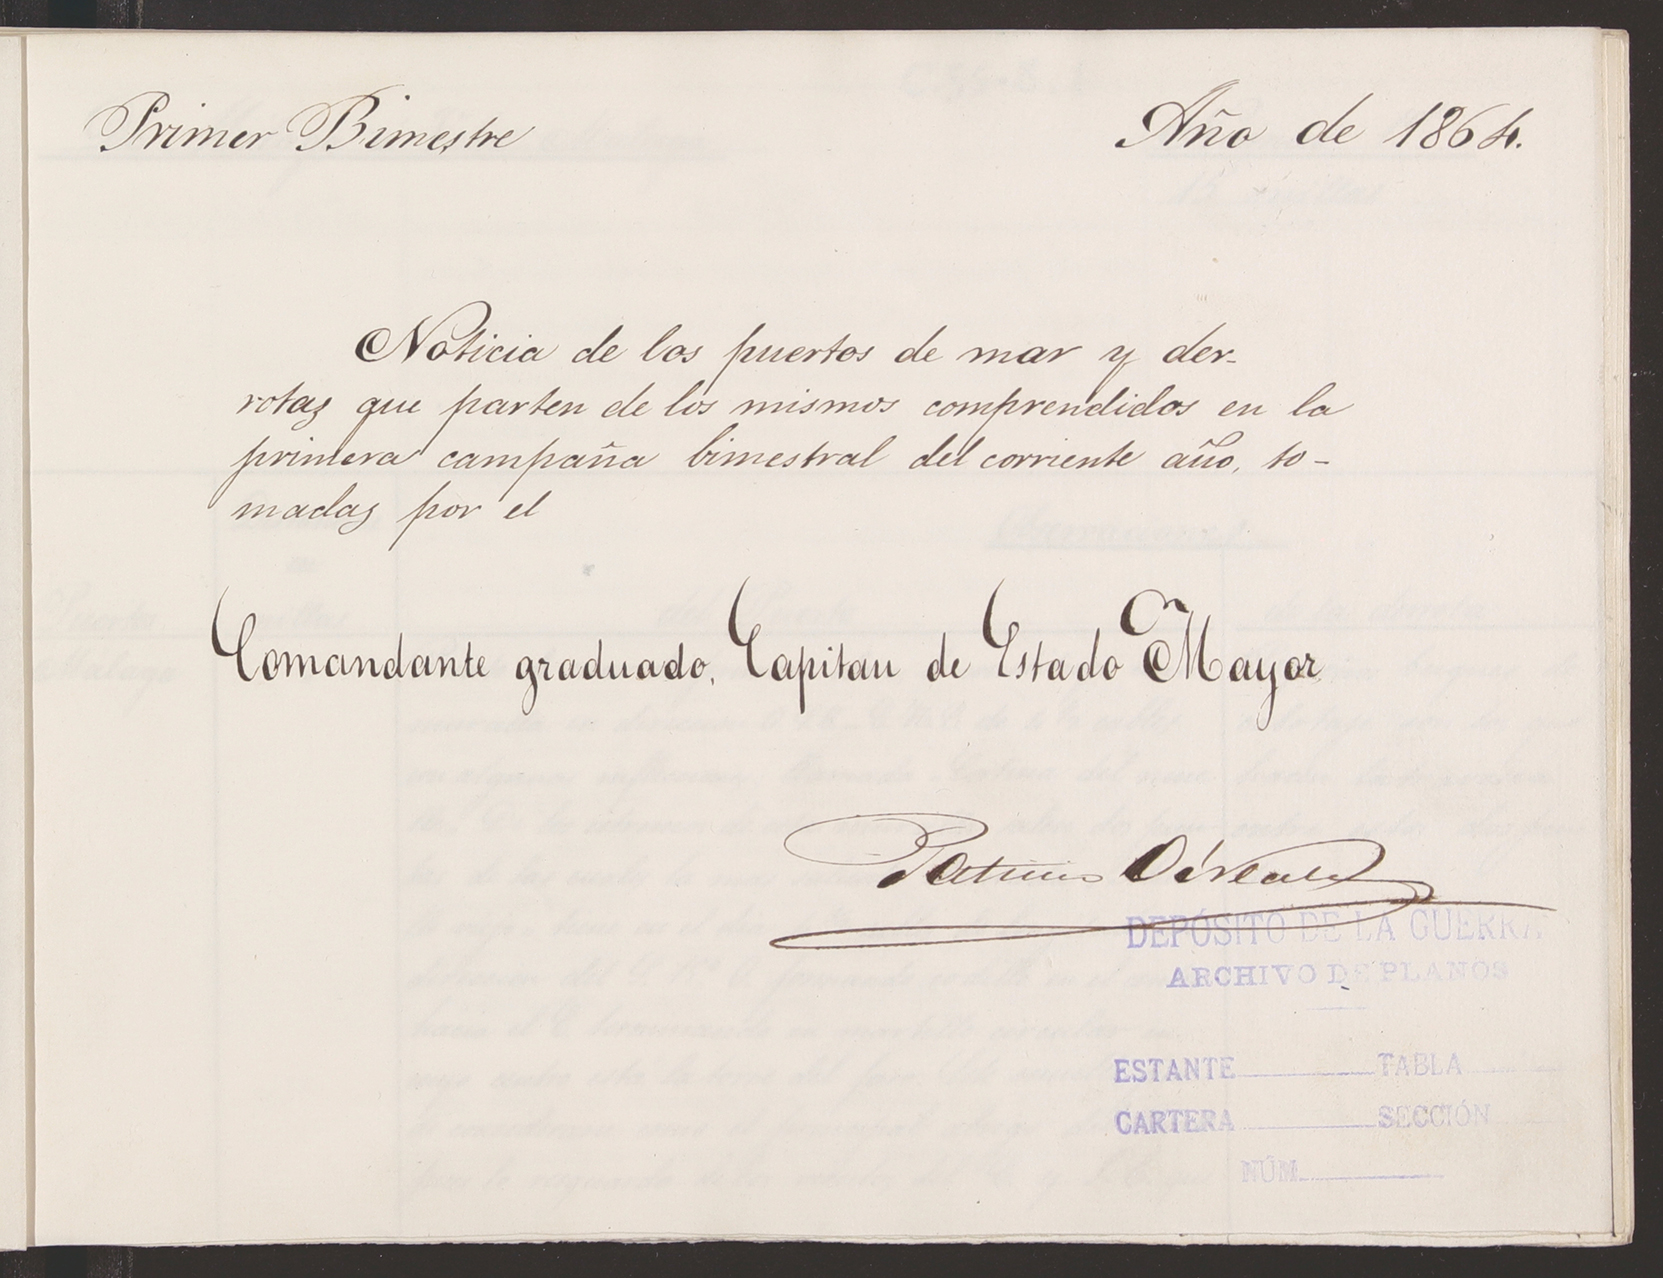 Primer Bimestre
Año de 1864.
Noticia de los puertos de mar y der-
rotas que parten de los mismos comprendidos en la
primera campaña bimestral del corriente año, to-
madas por el
Comandante graduado, Capitan de Estado Mayor
DEPÓSITO DE LA GUERRA
ARCHIVO DE PLANOS
ESTANTE TABLA
CARTERA SECCIÓN
NÚM